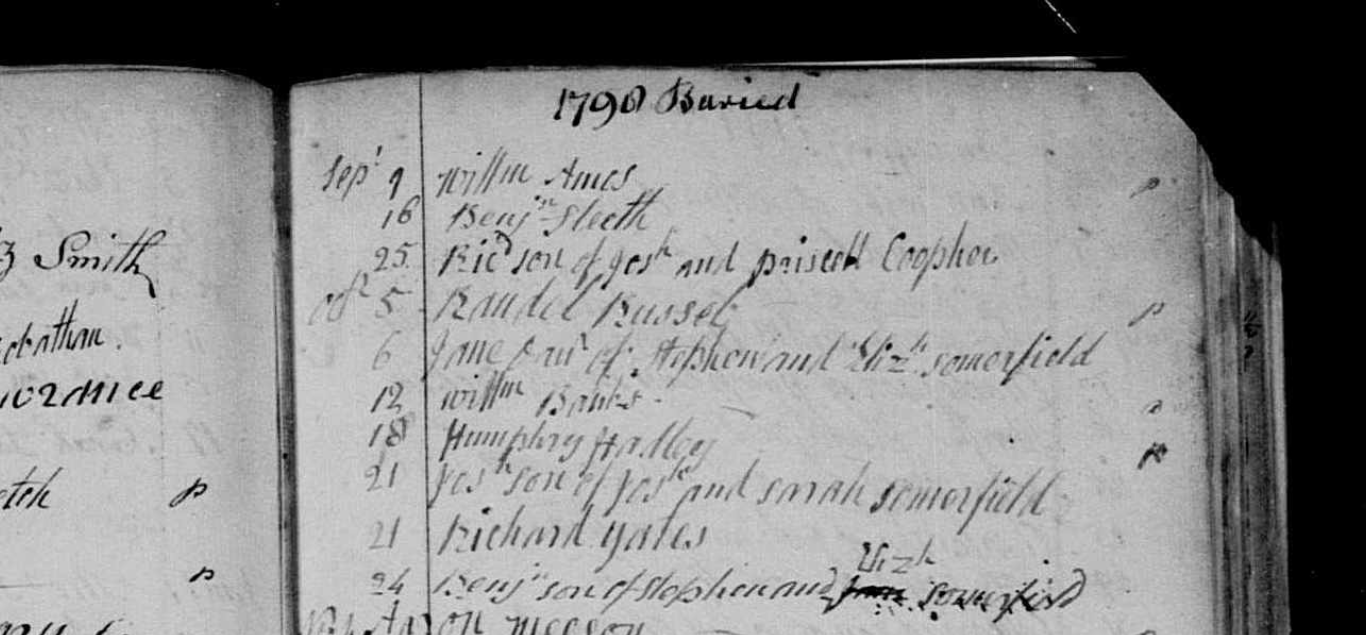 Smith
etch p
p
1798 Buried
Sepr 9 Willm Ames p
16 Benjn Sleeth
25 Ricd son of Josh and priscell Coopher
octr 5 Randel Russel p
6 Jane Daur of Stephen and Elizh somerfield
12 willm Banks p
18 Humphry Hadley p
21 Josh son of Josh and sarah somerfield
21 Richard yates
Elizh
24 Benjn son of stephen and somerfield
Aaron meeson